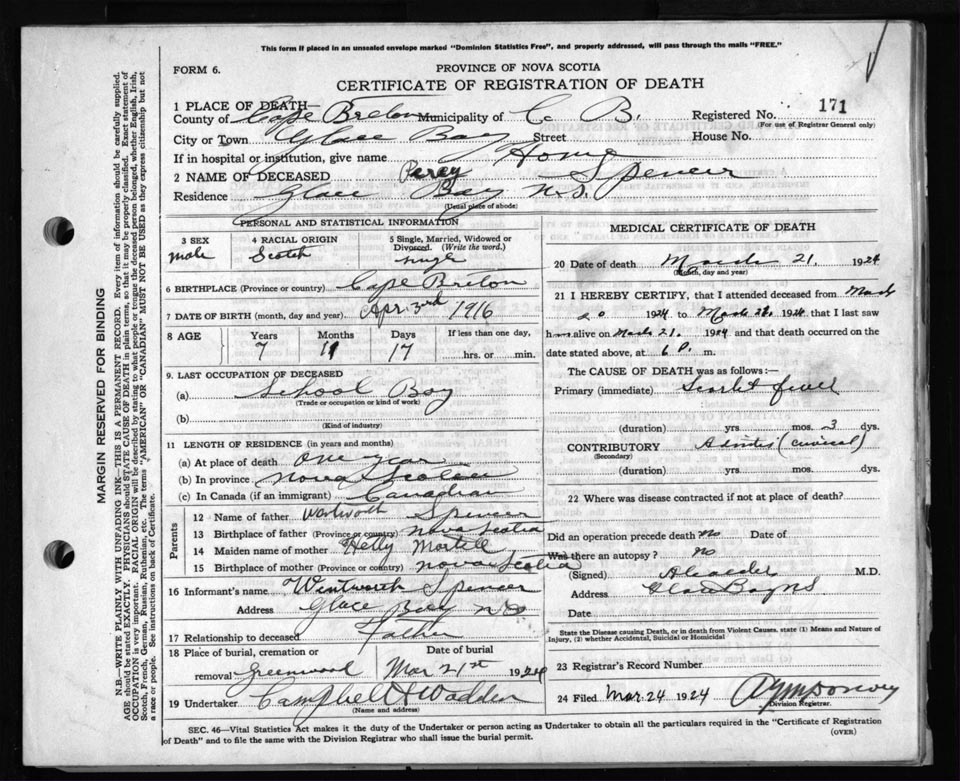 This form if placed in an unsealed envelope marked "Dominion Statistics Free", and properly addressed, will pass through the mails "FREE."
FORM 6.
PROVINCE OF NOVA SCOTIA
CERTIFICATE OF REGISTRATION OF DEATH
1 PLACE OF DEATH—
County of Cape Breton Municipality of C. B. Registered No. 171
(For use of Registrar General only)
City or Town Glace Bay Street House No.
If in hospital or institution, give name Home
2 NAME OF DECEASED Percy Spencer
Residence Glace Bay N.S.
(Usual place of abode)
PERSONAL AND STATISTICAL INFORMATION
3 SEX Male
4 RACIAL ORIGIN Scotch
5 Single, Married, Widowed or Divorced. (Write the word.) Single
6 BIRTHPLACE (Province or country) Cape Breton
7 DATE OF BIRTH (month, day and year) Apr 3rd 1916
8 AGE Years 7 Months 11 Days 17 If less than one day, hrs. or min.
9. LAST OCCUPATION OF DECEASED
(a) School Boy
(Trade or occupation or kind of work)
(b)
(Kind of industry)
11 LENGTH OF RESIDENCE (in years and months)
(a) At place of death one year
(b) In province Nova Scotia
(c) In Canada (if an immigrant) Canadian
Parents
12 Name of father Wentworth Spencer
13 Birthplace of father (Province or country) Nova Scotia
14 Maiden name of mother Hetty
15 Birthplace of mother (Province or country) Nova Scotia
16 Informant's name Wentworth Spencer
Address Glace Bay N S
17 Relationship to deceased Father
18 Place of burial, cremation or removal Greenwood
Date of burial Mar 21st 1924
19 Undertaker Campbell & Wadden
(Name and address)
MEDICAL CERTIFICATE OF DEATH
20 Date of death March 21. 1924
(Month, day and year)
21 I HEREBY CERTIFY, that I attended deceased from March
20 1924 to March 1924 that I last saw
him alive on March 21. 1924 and that death occurred on the
date stated above, at 6 P. m.
The CAUSE OF DEATH was as follows:—
Primary (immediate) Scarlet fever
(duration) yrs mos. 3 dys.
CONTRIBUTORY
(Secondary)
(duration) yrs mos. dys.
22 Where was disease contracted if not at place of death?
Did an operation precede death No Date of
Was there an autopsy? No
(Signed) M.D.
Address Glace Bay NS
Date
State the Disease causing Death, or in death from Violent Causes. state (1) Means and Nature of
Injury, (2) whether Accidental, Suicidal or Homicidal
23 Registrar's Record Number
24 Filed Mar. 24 1924
Division Registrar.
SEC. 46—Vital Statistics Act makes it the duty of the Undertaker or person acting as Undertaker to obtain all the particulars required in the "Certificate of Registration
of Death" and to file the same with the Division Registrar who shall issue the burial permit.
(OVER)
MARGIN RESERVED FOR BINDING
N.B.—WRITE PLAINLY WITH UNFADING INK—THIS IS A PERMANENT RECORD. Every item of information should be carefully supplied.
AGE should be stated EXACTLY. PHYSICIANS should STATE CAUSE OF DEATH in plain terms, so that it may be properly classified. Exact statement of
OCCUPATION is very important. RACIAL ORIGIN will be described by stating to what people or tongue the deceased person belonged, whether English, Irish,
Scotch, French, German, Russian, Ruthenian, etc. The terms "AMERICAN" OR "CANADIAN" MUST NOT BE USED as they express citizenship but not
a race or people. See instructions on back of Certificate.